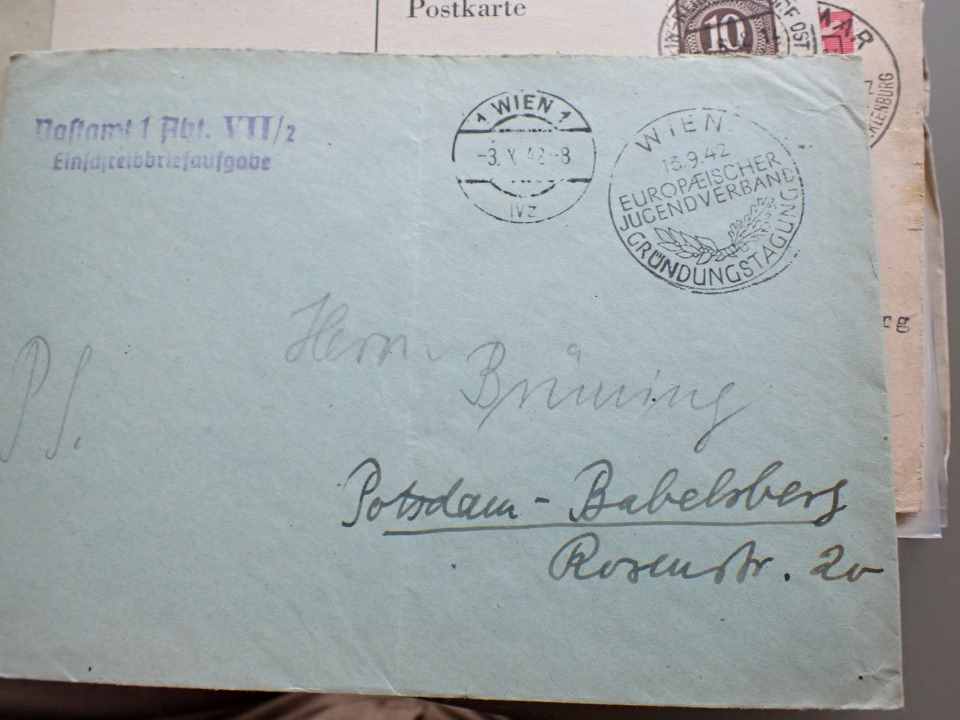 Postkarte
10
MAR
OST
KLENBURG
Postamt 1 Abt. VII/2
Einschreibbriefaufgabe
1 WIEN 1
-3.X.42-8
IVz
WIEN
15.9.42
EUROPÆISCHER
JUGENDVERBAND
GRÜNDUNGSTAGUNG
rg
Herrn
Brüning
P.S.
Potsdam-Babelsberg
Rosenstr. 20